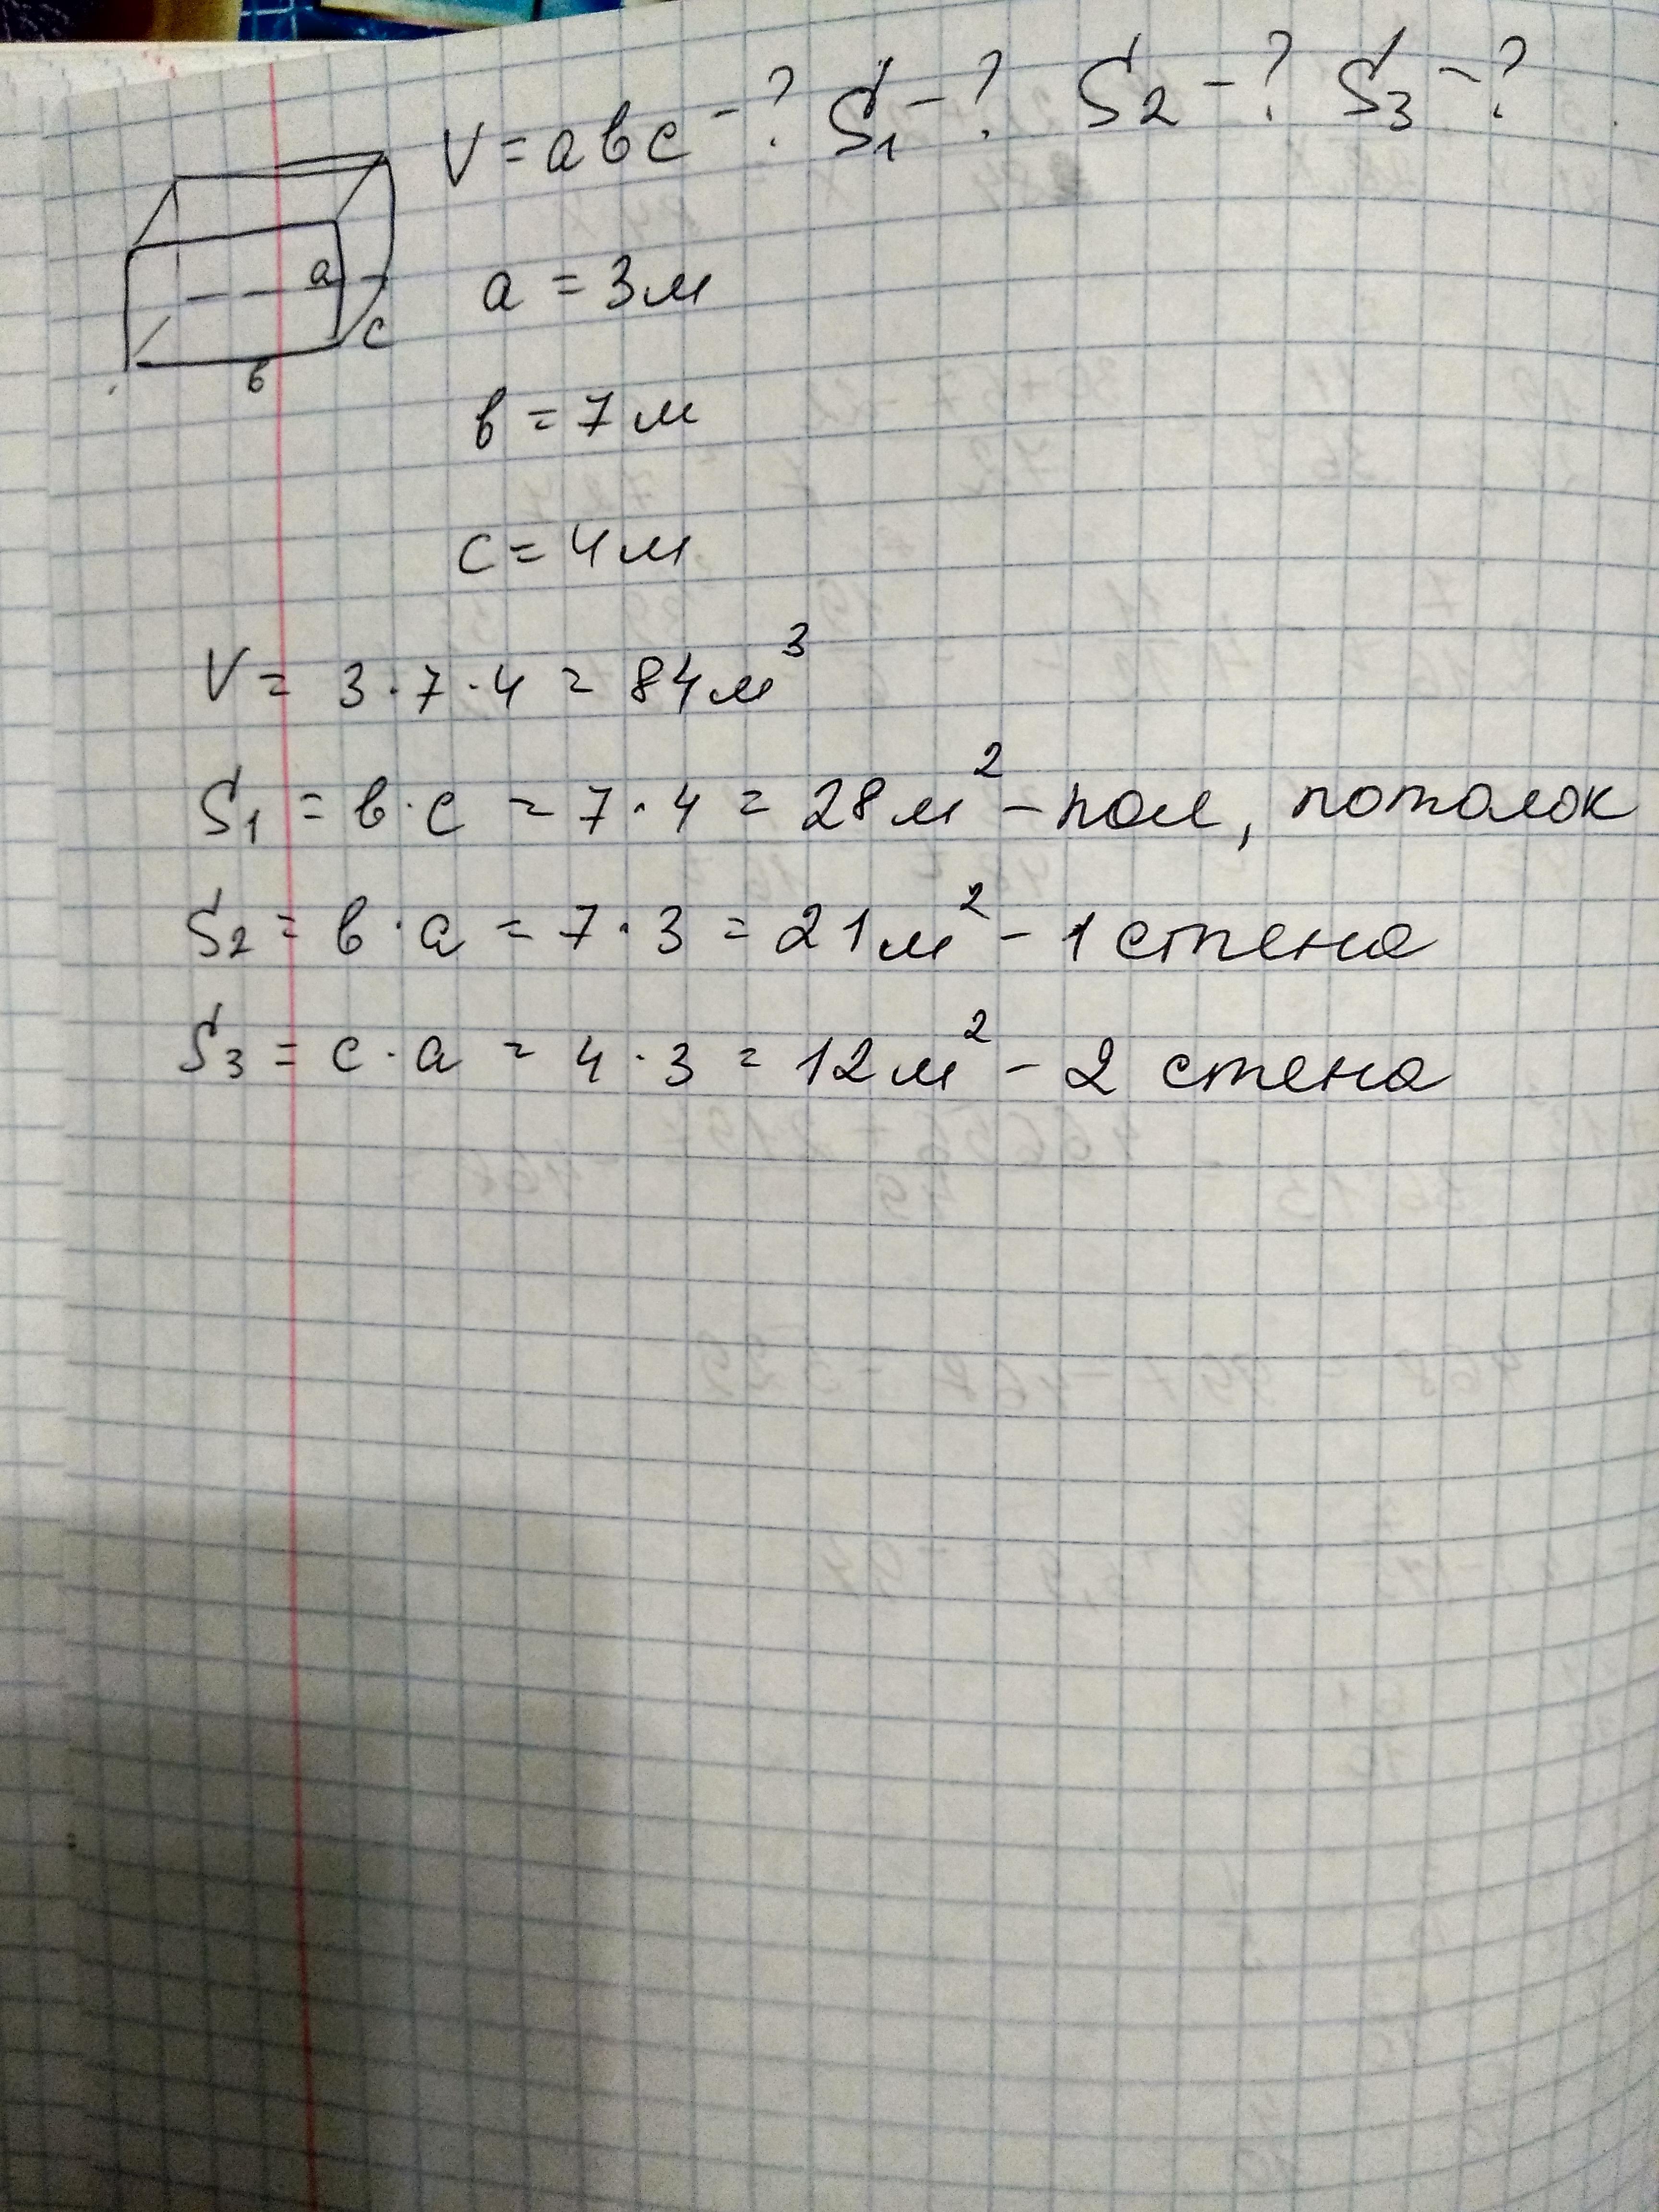 V = aвc - ? S1 - ? S2 - ? S3 - ?
a
c
в
a = 3м
в = 7м
c = 4м
V = 3·7·4 = 84м³
S1 = в·c = 7·4 = 28м² - пол, потолок
S2 = в·a = 7·3 = 21м² - 1 стена
S3 = c·a = 4·3 = 12м² - 2 стена